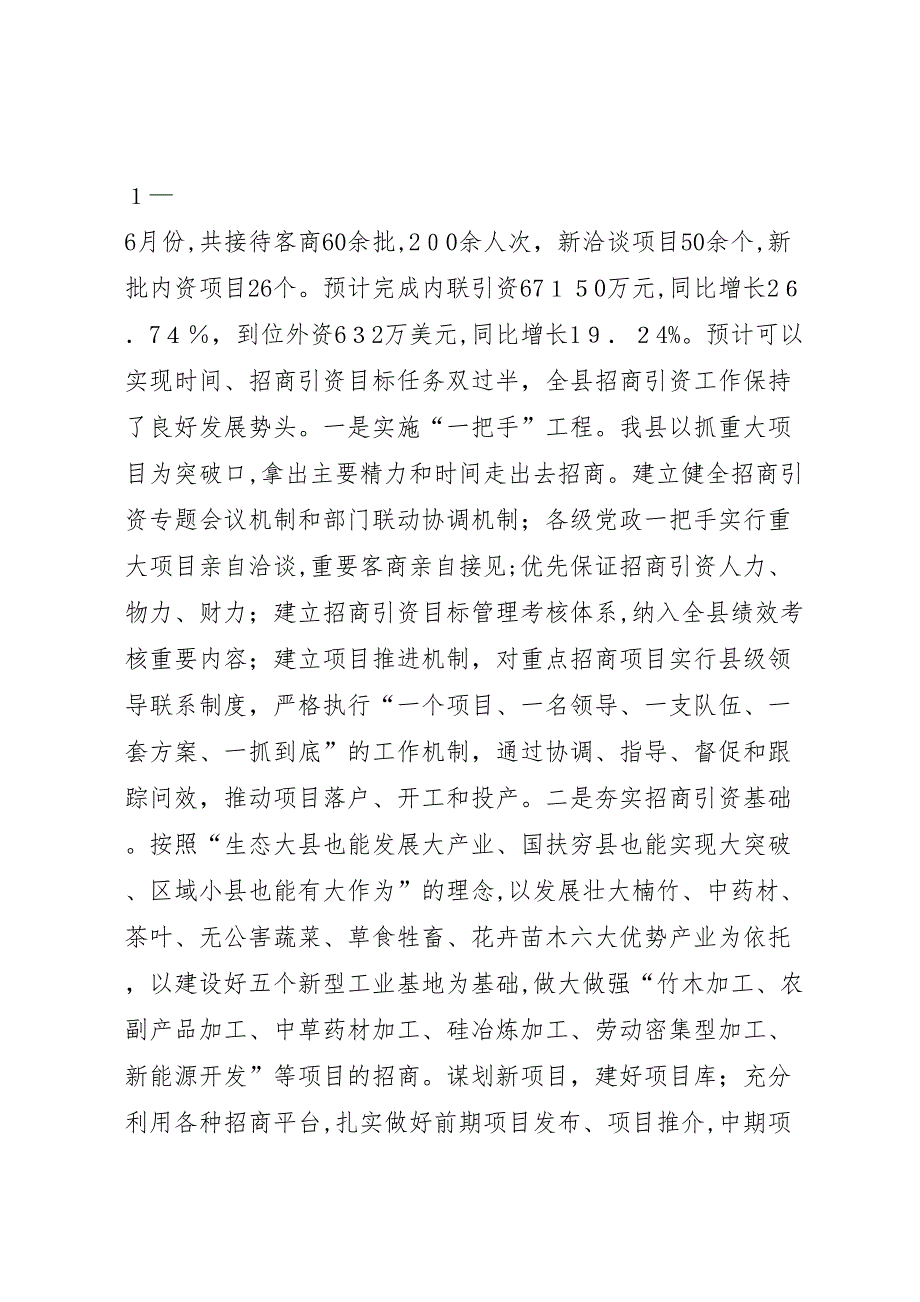 １—
6月份,共接待客商60余批,２００余人次，新洽谈项目50余个,新
批内资项目26个。预计完成内联引资67１５0万元,同比增长2６
．7４％，到位外资6３2万美元,同比增长1９．２4%。预计可以
实现时间、招商引资目标任务双过半，全县招商引资工作保持
了良好发展势头。一是实施“一把手”工程。我县以抓重大项
目为突破口,拿出主要精力和时间走出去招商。建立健全招商引
资专题会议机制和部门联动协调机制；各级党政一把手实行重
大项目亲自洽谈,重要客商亲自接见;优先保证招商引资人力、
物力、财力；建立招商引资目标管理考核体系,纳入全县绩效考
核重要内容；建立项目推进机制，对重点招商项目实行县级领
导联系制度，严格执行“一个项目、一名领导、一支队伍、一
套方案、一抓到底”的工作机制，通过协调、指导、督促和跟
踪问效，推动项目落户、开工和投产。二是夯实招商引资基础
。按照“生态大县也能发展大产业、国扶穷县也能实现大突破
、区域小县也能有大作为”的理念,以发展壮大楠竹、中药材、
茶叶、无公害蔬菜、草食牲畜、花卉苗木六大优势产业为依托
，以建设好五个新型工业基地为基础,做大做强“竹木加工、农
副产品加工、中草药材加工、硅冶炼加工、劳动密集型加工、
新能源开发”等项目的招商。谋划新项目，建好项目库；充分
利用各种招商平台,扎实做好前期项目发布、项目推介,中期项